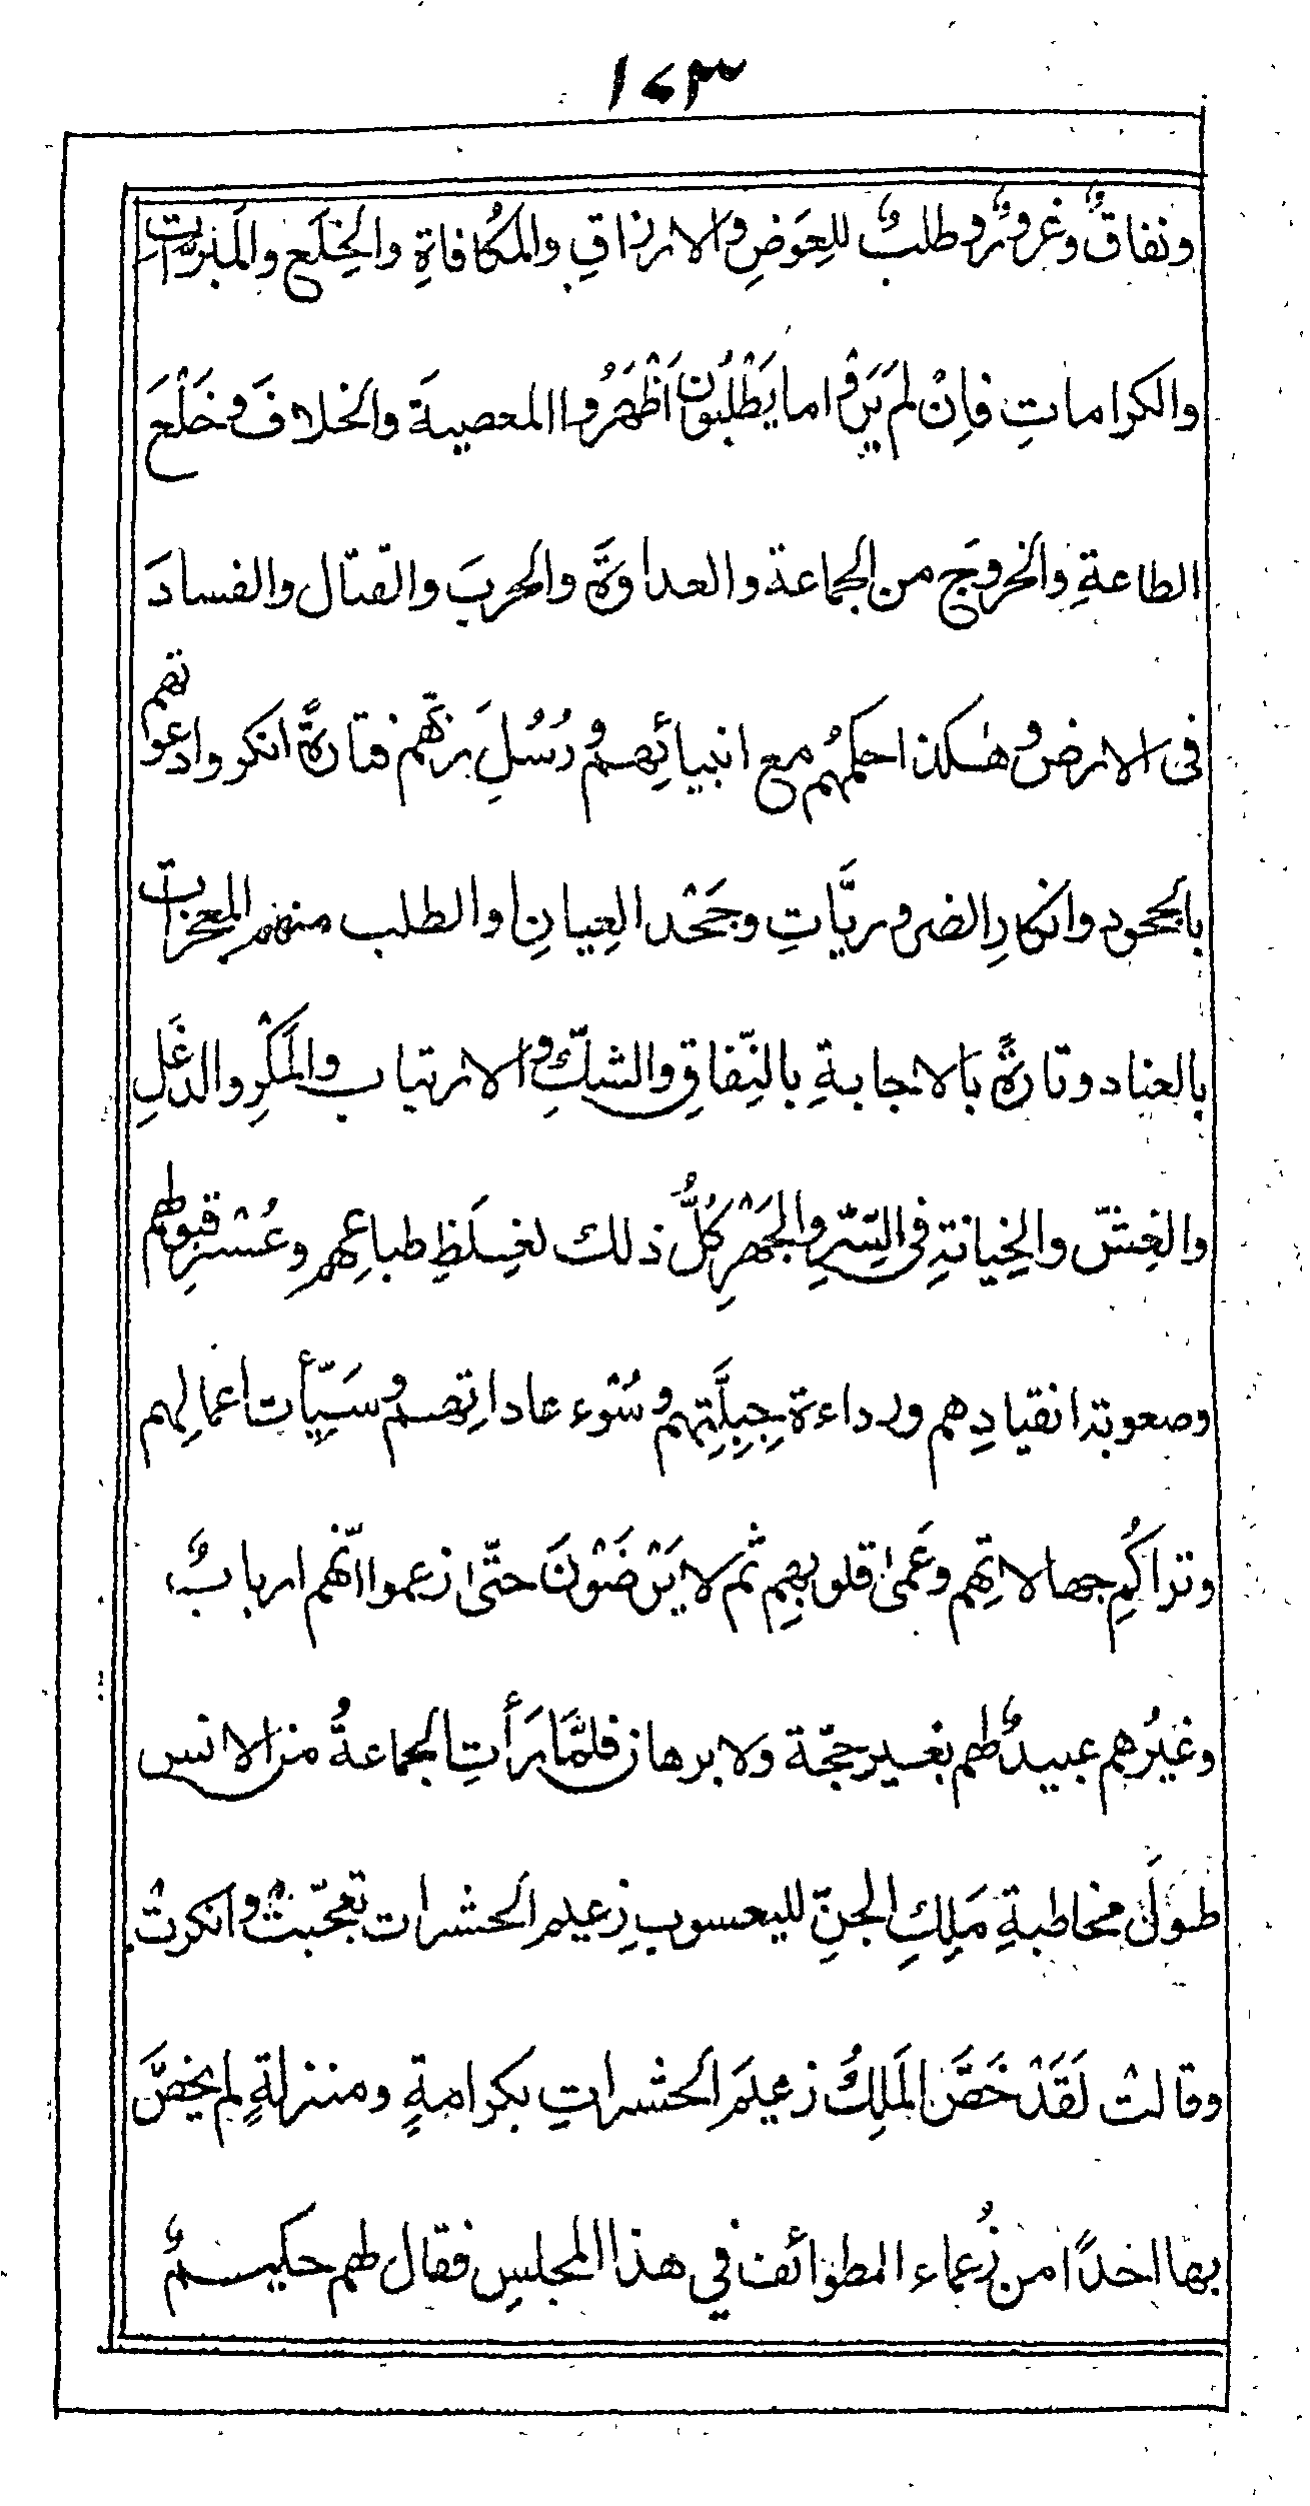 ١٤٣
ونفاقٌ وغرورٌ وطلبٌ للعِوَضِ والارزاقِ والمكُافاةِ والخِلَعِ والمَبَرّات
والكراماتِ فاِنْ لم يَرَوْا ما يَطْلُبُون اَظْهَرُوا المعصيةَ والخلافَ وخَلْعَ
الطاعةِ والخروجَ من الجماعة والعداوَةَ والحربَ والقتال والفسادَ
فى الارض وهٰكذا حكمهُم مع انبيائِهم ورُسُلِ ربّهم فتارةً انكروا دعواتهم
بالجحود وانكارِ الضروريَّاتِ وجَحْد العِيانِ او الطلب منهم المعجزات
بالعناد وتارةً بالاجابةِ بالنِّفاقِ والشكِّ والارتياب والمَكْرِ والدغَلِ
والغِشّ والخِيانةِ فى السِّرِّ والجَهْرِ كُلُّ ذلك لغِلَظِ طباعِهم وعُسْرِ قبولهم
وصعوبة انقيادِهم ورداءة جِبِلَّتِهم وسُوْء عاداتِهم وسَيِّأتِ اعمالِهم
وتراكُمِ جهالاتِهم وعَمىٰ قلوبهم ثم لا يَرْضَوْنَ حتّى زعموا انّهم اربابٌ
وغيرُهم عبيدٌ لهم بغير حجّة ولا برهان فلمَّا رَأتِ الجماعةُ من الانس
طولَ مخاطبةِ مَلِكِ الجنِّ لليعسوبِ زعيم الحشرات تعجّبتْ وانكرتْ
وقالتْ لَقَدْ خَصَّ المَلِكُ زعيمَ الحشراتِ بكرامةٍ ومنزلةٍ لم يخصَّ
بها احدًا من زُعماء الطوائف في هذا المجلسِ فقال لهم حكيمٌ